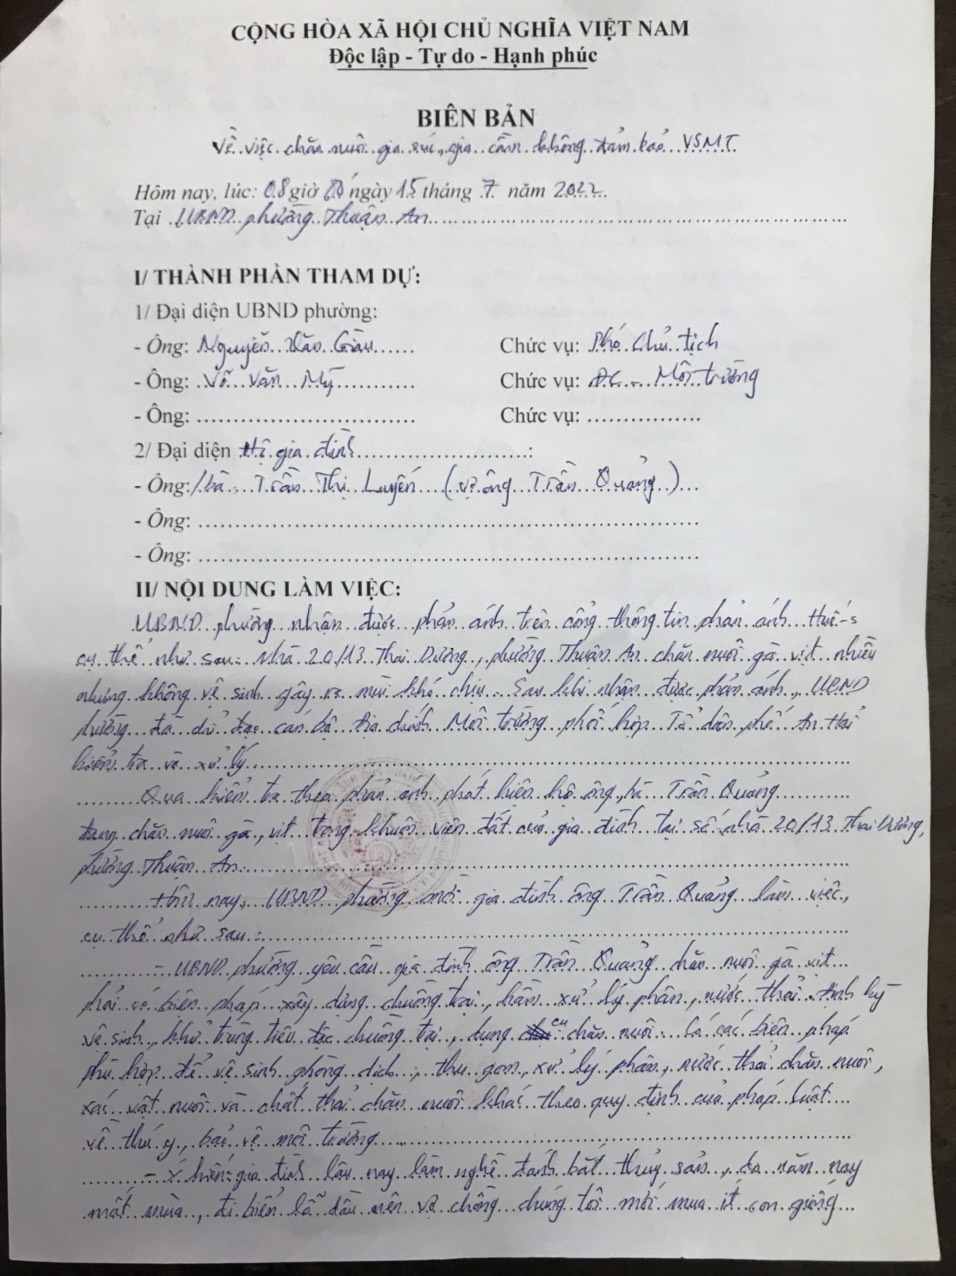 CỘNG HÒA XÃ HỘI CHỦ NGHĨA VIỆT NAM
Độc lập - Tự do - Hạnh phúc
BIÊN BẢN
Về việc chăn nuôi gia súc, gia cầm không đảm bảo VSMT
Hôm nay, lúc: 08 giờ 00 ngày 15 tháng 7 năm 2022.
Tại UBND phường Thuận An
I/ THÀNH PHẦN THAM DỰ:
1/ Đại diện UBND phường:
- Ông: Nguyễn Văn Giàu Chức vụ: Phó Chủ tịch
- Ông: Võ Văn Mỹ Chức vụ: ĐC - Môi trường
- Ông: Chức vụ:
2/ Đại diện Hộ gia đình:
- Ông:/bà Trần Thị Luyến (vợ ông Trần Quảng)
- Ông:
- Ông:
II/ NỘI DUNG LÀM VIỆC:
UBND phường nhận được phản ánh trên cổng thông tin phản ánh Huế-s
cụ thể như sau: Nhà 20/13 Thai Dương, phường Thuận An chăn nuôi gà vịt nhiều
nhưng không vệ sinh gây ra mùi khó chịu. Sau khi nhận được phản ánh, UBND
phường đã chỉ đạo cán bộ Địa chính Môi trường phối hợp Tổ dân phố An Hải
kiểm tra và xử lý.
Qua kiểm tra theo phản ánh, phát hiện hộ ông, bà Trần Quảng
đang chăn nuôi gà, vịt trong khuôn viên đất của gia đình tại số nhà 20/13 Thai Dương,
phường Thuận An.
Hôm nay, UBND phường mời gia đình ông Trần Quảng làm việc,
cụ thể như sau:
- UBND phường yêu cầu gia đình ông Trần Quảng chăn nuôi gà vịt
phải có biện pháp xây dựng chuồng trại, hầm xử lý phân, nước thải. Định kỳ
vệ sinh, khử trùng tiêu độc chuồng trại, dụng cụ chăn nuôi. Có các biện pháp
phù hợp để vệ sinh phòng dịch, thu gom, xử lý phân, nước thải chăn nuôi,
xác vật nuôi và chất thải chăn nuôi khác theo quy định của pháp luật
về thú y, bảo vệ môi trường.
- Ý kiến gia đình lâu nay làm nghề đánh bắt thủy sản, đa năm nay
mất mùa, đi biển lỗ dầu nên vợ chồng chúng tôi mới mua ít con giống